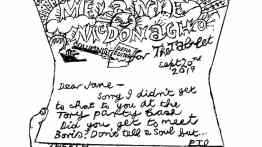 MELANIE
McDONAGH
for The Tablet
Sept 20th
2019
Dear Jane –
Sorry I didn't get
to chat to you at the
Tory party bash
Did you get to meet
Boris? Don't tell a soul but...
P.T.O